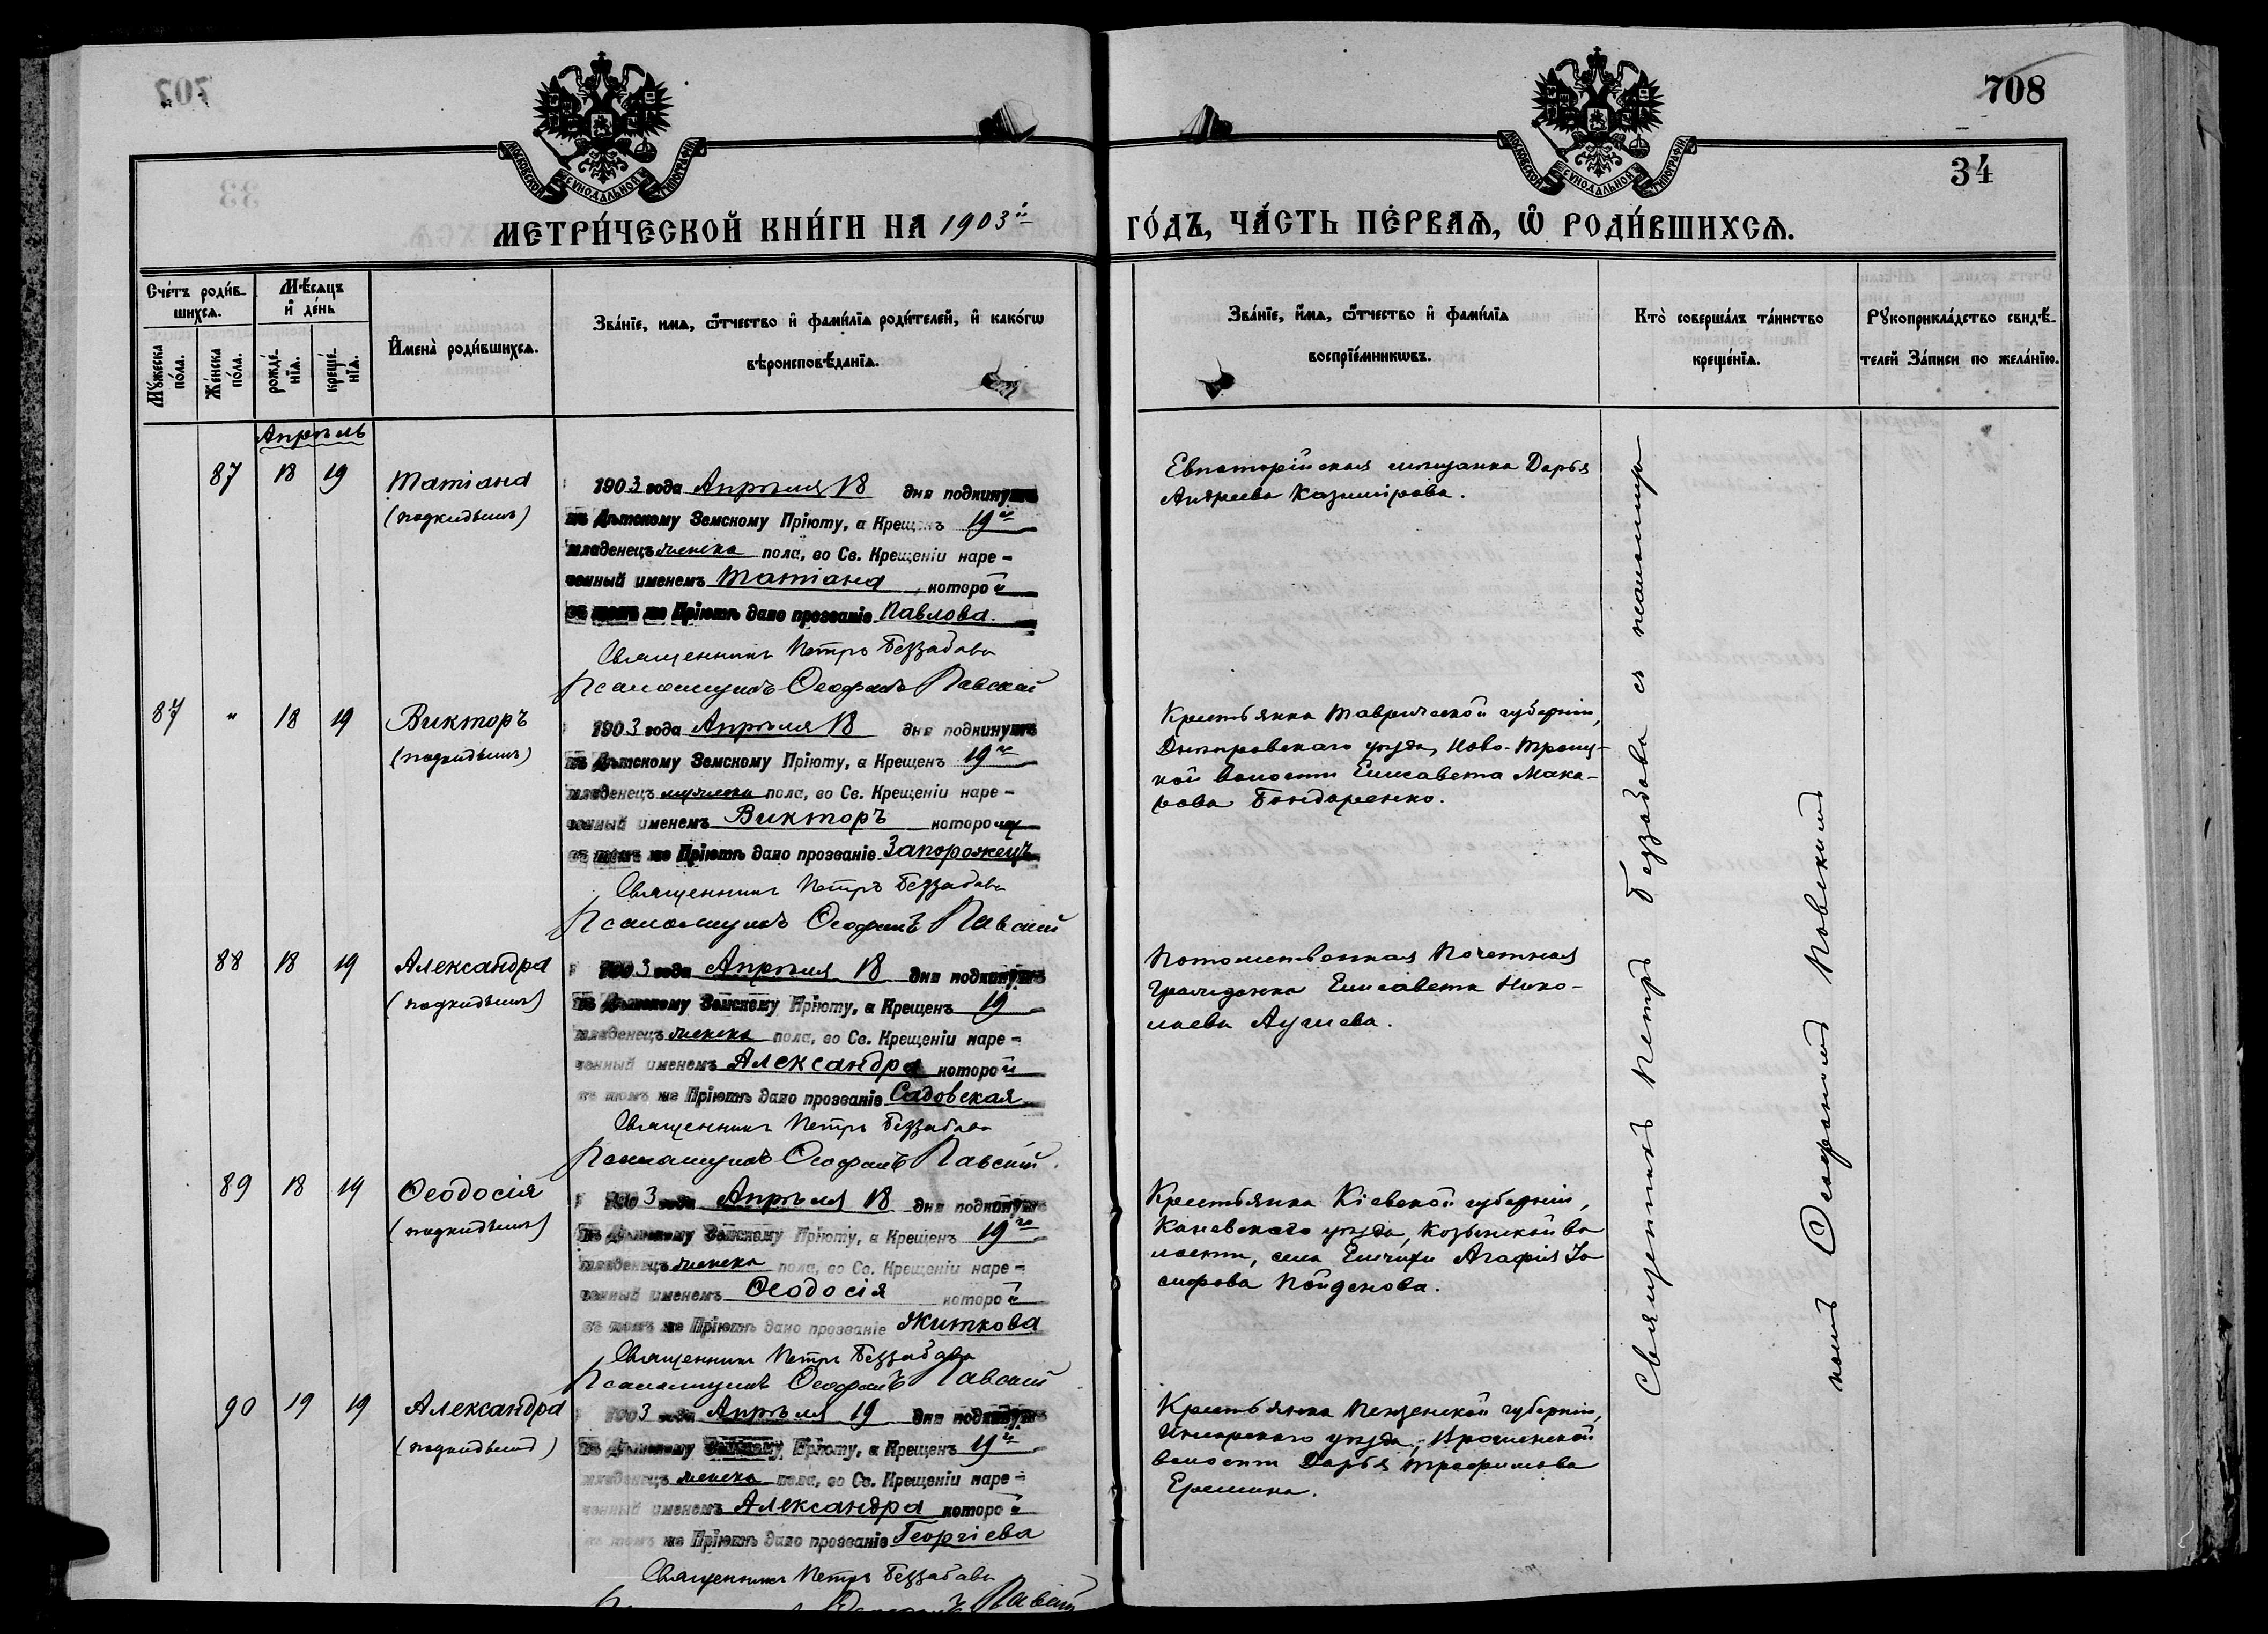 708
34
МОСКОВСКОЙ СѴНОДАЛЬНОЙ ТИПОГРАФІИ
МОСКОВСКОЙ СѴНОДАЛЬНОЙ ТИПОГРАФІИ
МЕТРИ́ЧЕСКОЙ КНИ́ГИ НА 1903й
ГО́ДЪ, ЧА́СТЬ ПЕ́РВАѦ, Ѡ҆ РОДИ́ВШИХСѦ.
Сче́тъ роди́в-
шихсѧ.
Мꙋ́жеска
по́ла.
Же́нска
по́ла.
Мѣ́сѧцъ
и҆ де́нь
рожде́-
нїѧ.
креще́-
нїѧ.
И҆мена̀ роди́вшихсѧ.
Зва́нїе, и҆мѧ, ѻ҆́тчество и҆ фами́лїѧ роди́телей, и҆ како́гѡ
вѣроисповѣ́данїѧ.
Зва́нїе, и҆́мѧ, ѻ҆́тчество и҆ фами́лїѧ
воспрїе́мникѡвъ.
Кто̀ соверша́лъ та́инство
креще́нїѧ.
Рꙋкоприкла́дство свидѣ́-
телей За́писи по жела́нїю.
Апрѣль
87 18 19 Татіана
(подкидышъ)
1903 года Апрѣля 18 дня подкинутъ
къ Дѣтскому Земскому Пріюту, а Крещенъ 19го
младенецъ женска пола, во Св. Крещеніи наре-
ченный именемъ Татіана, которой
въ томъ же Пріютѣ дано прозваніе Павлова.
Священникъ Петръ Беззабава
Псаломщикъ Ѳеофанъ Павскій
Евпаторійская мѣщанка Дарья
Андреева Казимірова.
87 " 18 19 Викторъ
(подкидышъ)
1903 года Апрѣля 18 дня подкинутъ
къ Дѣтскому Земскому Пріюту, а Крещенъ 19го
младенецъ мужеска пола, во Св. Крещеніи наре-
ченный именемъ Викторъ которому
въ томъ же Пріютѣ дано прозваніе Запорожецъ
Священникъ Петръ Беззабава
Псаломщикъ Ѳеофанъ Павскій
Крестьянка Таврической губерніи,
Днѣпровскаго уѣзда, Ново-Троиц-
кой волости Елисавета Мака-
рова Бондаренко.
88 18 19 Александра
(подкидышъ)
1903 года Апрѣля 18 дня подкинутъ
къ Дѣтскому Земскому Пріюту, а Крещенъ 19
младенецъ женска пола, во Св. Крещеніи наре-
ченный именемъ Александра которой
въ томъ же Пріютѣ дано прозваніе Садовская
Священникъ Петръ Беззабава
Псаломщикъ Ѳеофанъ Павскій.
Потомственная Почетная
гражданка Елисавета Нико-
лаева
89 18 19 Ѳеодосія
(подкидышъ)
1903 года Апрѣля 18 дня подкинутъ
къ Дѣтскому Земскому Пріюту, а Крещенъ 19го
младенецъ женска пола, во Св. Крещеніи наре-
ченный именемъ Ѳеодосія которой
въ томъ же Пріютѣ дано прозваніе Житкова
Священникъ Петръ Беззабава
Псаломщикъ Ѳеофанъ Павскій
Крестьянка Кіевской губерніи,
Каневскаго уѣзда, Козинской во
лости, села Емчихи Агафія Іо
сифова Пойденова.
90 19 19 Александра
(подкидышъ)
1903 года Апрѣля 19 дня подкинутъ
къ Дѣтскому Земскому Пріюту, а Крещенъ 19го
младенецъ женска пола, во Св. Крещеніи наре-
ченный именемъ Александра которой
въ томъ же Пріютѣ дано прозваніе Георгіева
Священникъ Петръ Беззабава
Павскій
Крестьянка Пензенской губерніи,
Инсарскаго уѣзда,
волости Дарья Трофимова
Еремина.
Священникъ Петръ Беззабава съ псаломщи
комъ Ѳеофаномъ Павскимъ